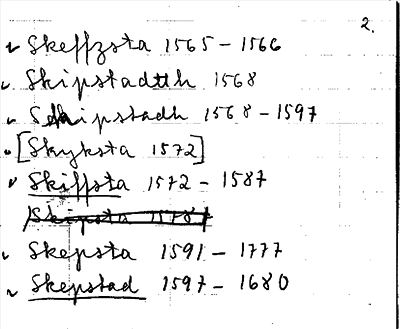 2.
Skeffzsta 1565 - 1566
Skipstadtth 1568
Skipstadh 1568 - 1597
[Skyksta 1572]
Skiffsta 1572 - 1587
Skipsta 1578
Skepsta 1591 - 1777
Skepstad 1597 - 1680